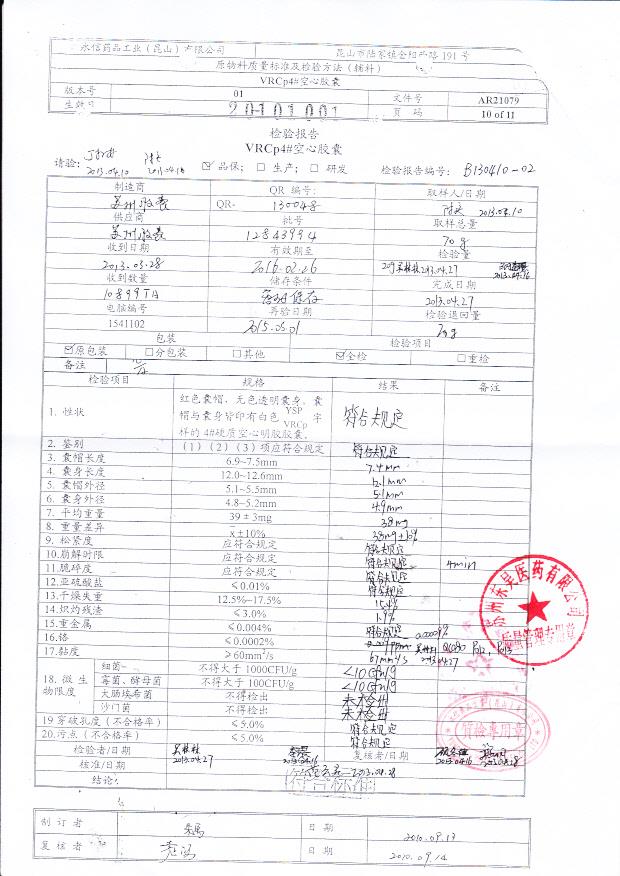 永信药品工业（昆山）有限公司 昆山市陆家镇金阳中路 191 号
原物料质量标准及检验方法（辅料）
VRCp4#空心胶囊
版本号 01 文件号 AR21079
生效日 20101001 页 码 10 of 11
检验报告
VRCp4#空心胶囊
请验： 2013.04.10 2013.04.10 ☑ 品保； □ 生产； □ 研发 检验报告编号： B130410-02
制造商 QR 编号: 取样人/日期
苏州胶囊 QR- 130048 2013.04.10
供应商 批号 取样总量
苏州胶囊 12843994 70g
收到日期 有效期至 检验量
2013.03.28 2016.02.26 20g 2013.04.27 2013.04.16
收到数量 储存条件 完成日期
密封保存 2013.04.27
电脑编号 再验日期 检验退回量
1541102 2015.05.01
包装 检验项目
☑原包装 □分包装 □其他 ☑全检 □重检
备注
检验项目 规格 结果 备注
1. 性状 红色囊帽、无色透明囊身，囊帽与囊身皆印有白色 YSP VRCp 字样的 4#硬质空心明胶胶囊。 符合规定
2. 鉴别 (1)(2)(3)项应符合规定 符合规定
3. 囊帽长度 6.9~7.5mm 7.4mm
4. 囊身长度 12.0~12.6mm 12.1mm
5. 囊帽外径 5.1~5.5mm 5.1mm
6. 囊身外径 4.8~5.2mm 4.9mm
7. 平均重量 39±3mg 38mg
8. 重量差异 x±10% 38mg±10%
9. 松紧度 应符合规定 符合规定
10.崩解时限 应符合规定 符合规定 4min
11.脆碎度 应符合规定 符合规定
12.亚硫酸盐 ≤0.01% 符合规定
13.干燥失重 12.5%~17.5% 15.4%
14.炽灼残渣 ≤3.0% 1.9%
15.重金属 ≤0.004% 符合规定
16.铬 ≤0.0002% 0.00009%
17.黏度 ≥60mm²/s 67mm²/s 2013.04.27
18. 微生物限度 细菌 不得大于 1000CFU/g <10cfu/g
霉菌、酵母菌 不得大于 100CFU/g <10cfu/g
大肠埃希菌 不得检出 未检出
沙门菌 不得检出 未检出
19 穿破孔度（不合格率） ≤5.0% 符合规定
20.污点（不合格率） ≤5.0% 符合规定
检验者/日期 2013.04.27 2013.04.16 复核者/日期 2013.04.16 2013.04.28
核准/日期 2013.04.28
结论: 符合标准
苏州东吴医药有限公司
质量管理专用章
质检专用章
制订者 日 期 2010.09.13
复核者 日 期 2010.09.14